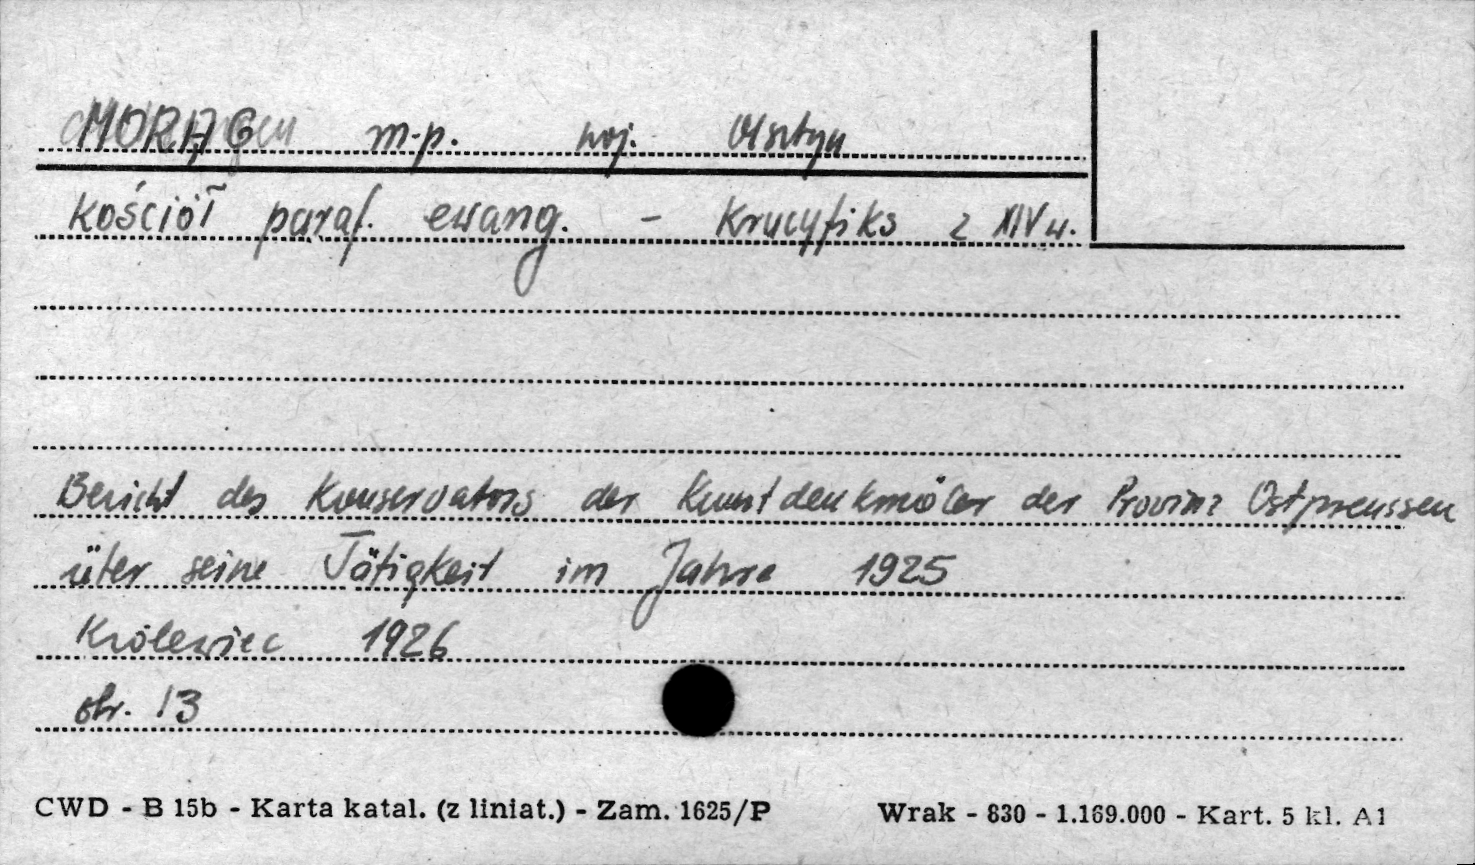 MORĄG m.p. woj. Olsztyn
Kościół paraf. ewang. - Krucyfiks z XIV w.
Bericht des Konservators der Kunstdenkmäler der Provinz Ostpreussen
über seine Tätigkeit im Jahre 1925
Królewiec 1926
str. 13
CWD - B 15b - Karta katal. (z liniat.) - Zam. 1625/P Wrak - 830 - 1.169.000 - Kart. 5 kl. A1